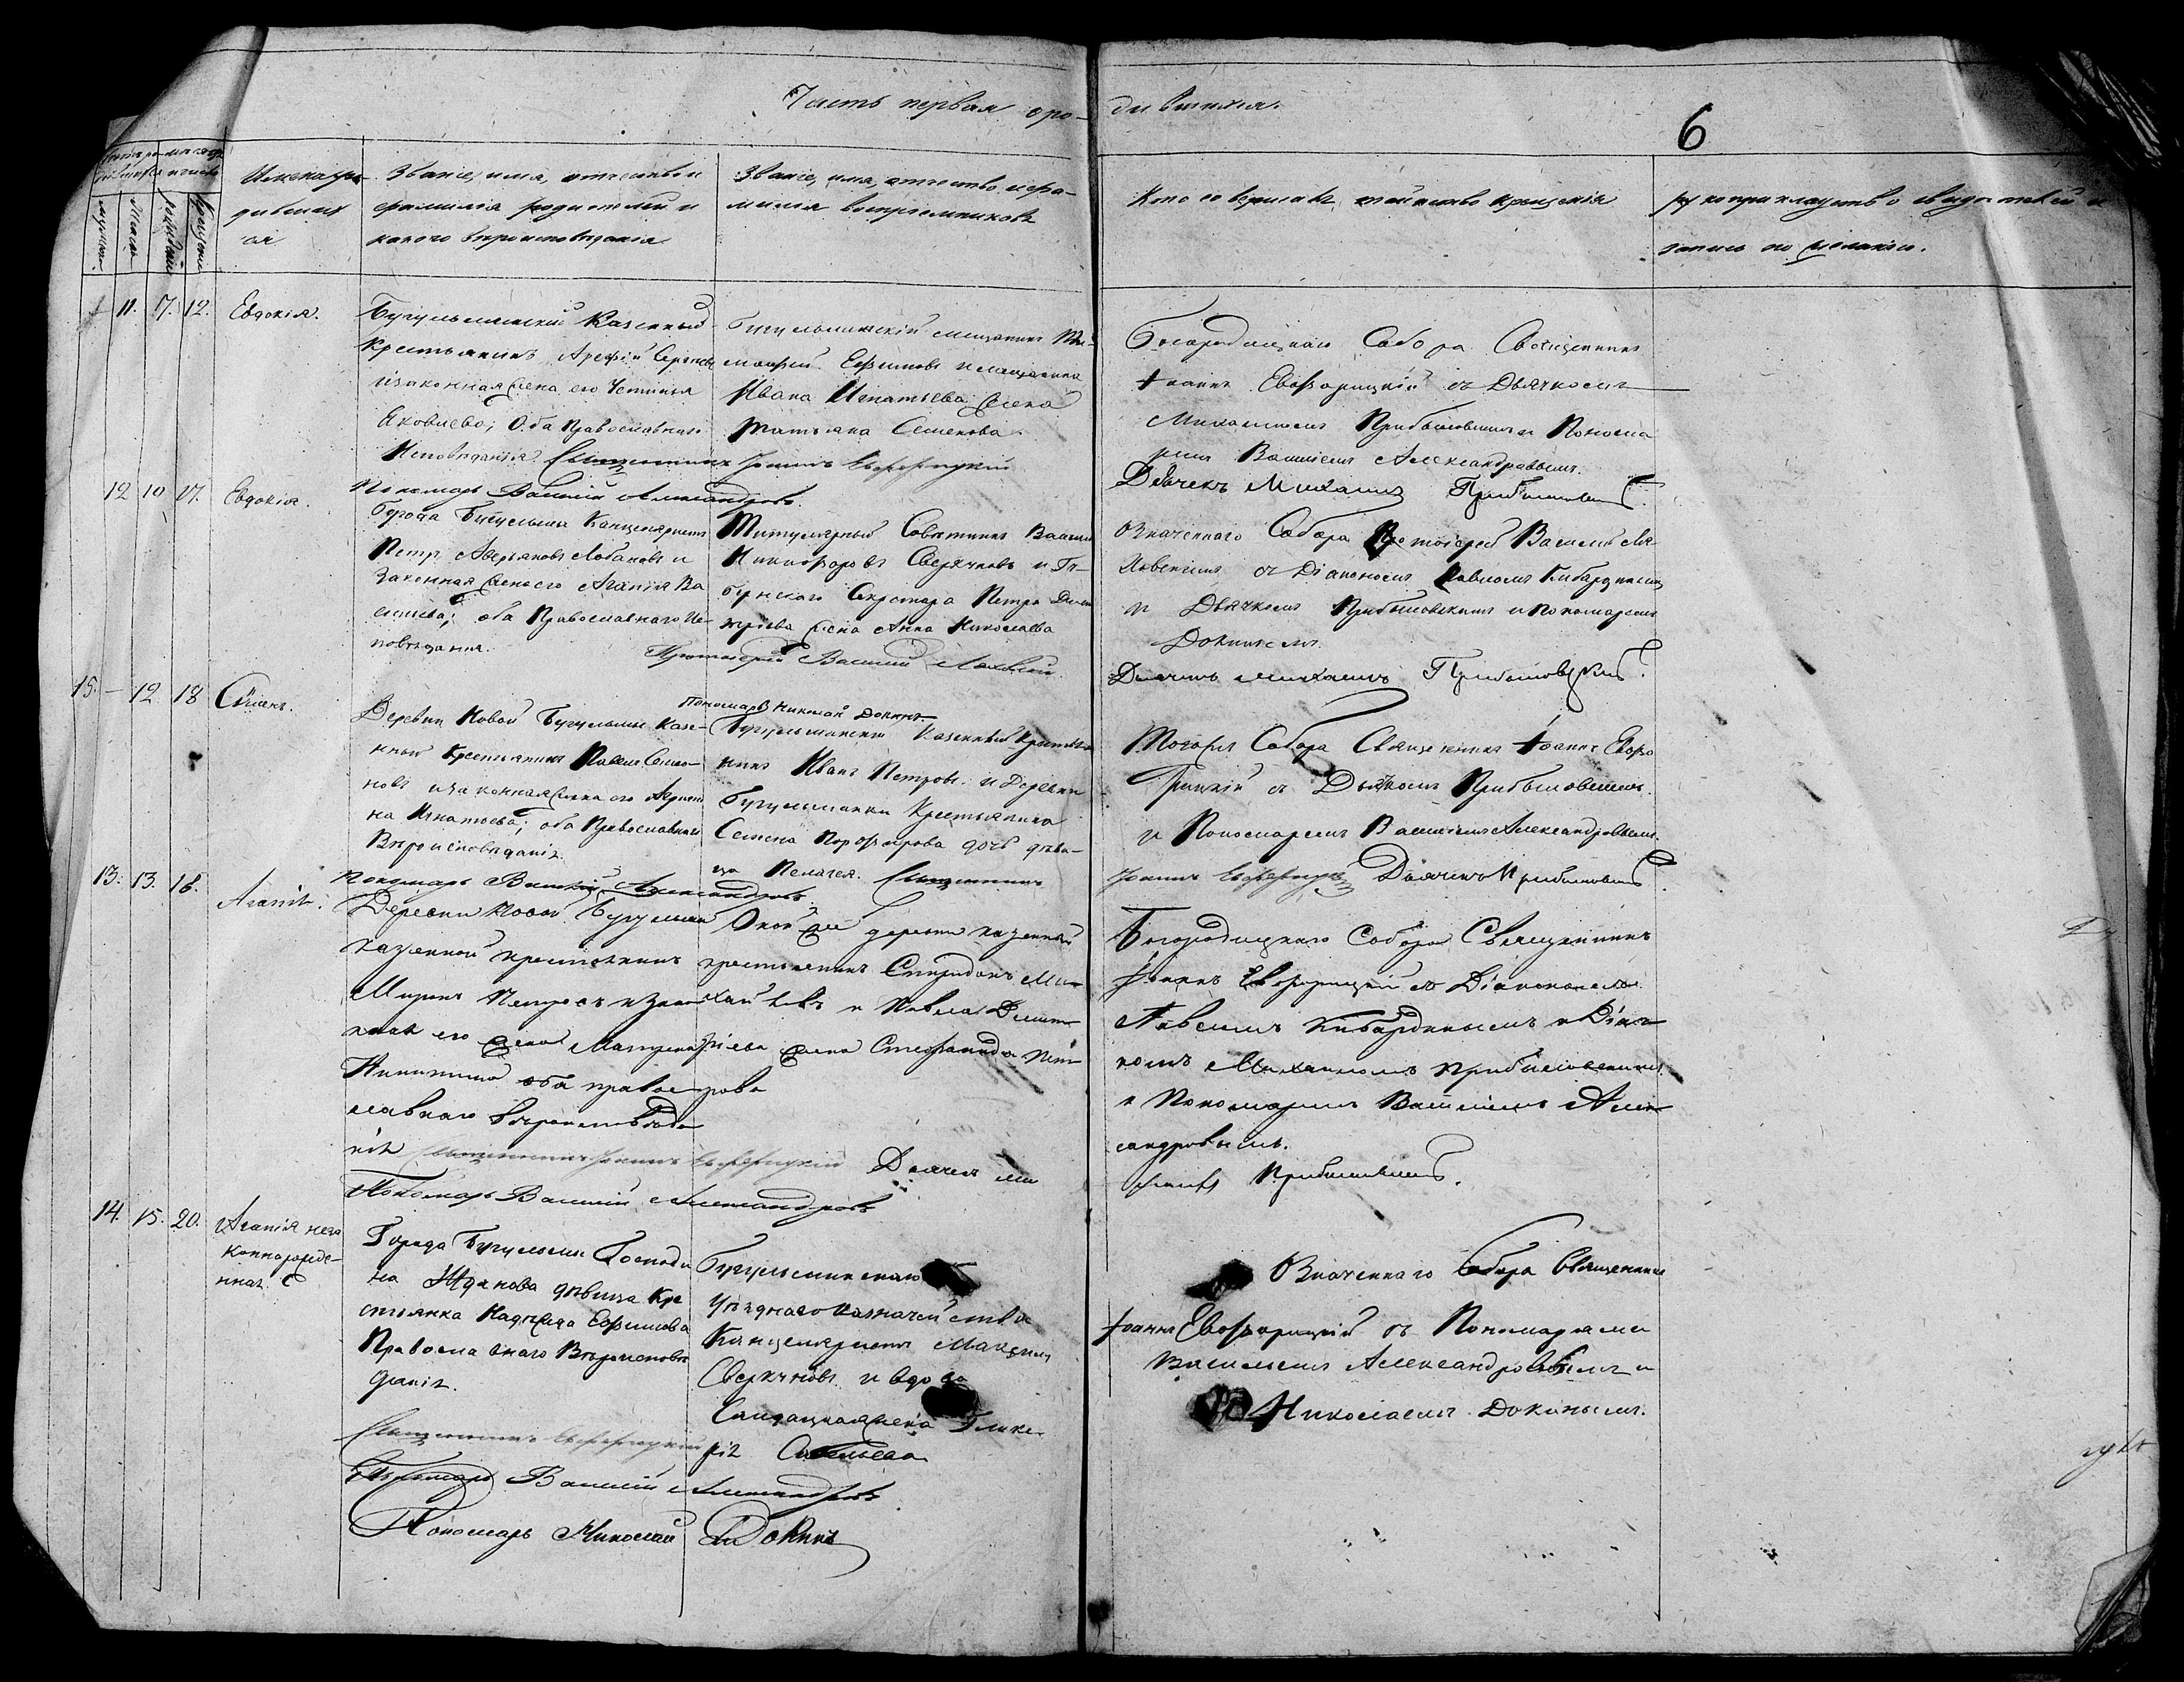 Часть первая о ро-
дившихся.
6
Имена ро-
дивших
ся
Званіе, имя, отчество и
фамилія родителей и
какого вѣроисповѣданія
Званіе, имя, отчество и фа-
милія воспріемниковъ
Кто совершалъ таинство крещенія
рукоприкладство свидѣтелей
запись по желанію.
11. 7. 12. Евдокія.
Бугульминскій Казенный
Крестьянинъ Арефій Сергѣевъ
и законная жена его Устинья
Яковлева; Оба Православнаго
Исповѣданія. Священникъ Іоаннъ Евфорицкій
Пономарь Василій Александровъ.
Бугульминскій мещанинъ Ти-
мофей Ефимовъ и мещанина
Ивана Игнатьева жена
Татьяна Семенова
Богородицкаго Собора Священникъ
Іоаннъ Евфорицкій съ Дьячкомъ
Михаиломъ Прибыловскимъ и Понома
ремъ Василіемъ Александровымъ.
Дьячекъ Михаилъ Прибыловскій.
12 10 17. Евдокія.
Города Бугульмы Канцеляристъ
Петръ Аверьяновъ Лобановъ и
Законная жена его Агапія Ва
сильева; оба Православнаго Ис-
повѣданія.
Титулярный Совѣтникъ Василій
Никифоровъ Сверчковъ и Гу-
бернскаго Секретаря Петра Дми
тріева жена Анна Николаева
Протоіерей Василій
Пономарь Николай Докинъ
Означеннаго Собора Протоіерей Василій
съ Діакономъ Павломъ Кибардинымъ
и Дьячкомъ Прибыловскимъ и пономаремъ
Докинымъ.
Дьячекъ Михаилъ Прибыловскій.
15. – 12 18 Симеонъ.
Деревни Новой Бугульмы Казе-
нный Крестьянинъ Павелъ Семе-
новъ и законная жена его
на Игнатьева; оба Православнаго
Вѣроисповѣданія.
Пономарь Василій Александровъ
Бугульминскій Казенный Крестья
нинъ Иванъ Петровъ и Деревни
Бугульминки Крестьянина
Семена Порфирова дочь дѣви-
ца Пелагея. Священникъ
Тогожъ Собора Священникъ Іоаннъ Евфо
рицкій съ Дьячкомъ Прибыловскимъ
и Пономаремъ Василіемъ Александровымъ.
Іоаннъ Евфорицкій Дьячекъ Прибыловскій.
13. 13. 18. Агапія.
Деревни Новой Бугульмы
казенной крестьянинъ
Миронъ Петровъ и закон
ная его жена Матрена
Никитина оба правос
лавнаго вѣроисповѣда
нія Священникъ Іоаннъ Евфорицкій Дьячекъ Ми
Пономарь Василій Александровъ
Оной же деревни казенный
крестьянинъ Спиридонъ Ми
хайловъ и Павла Дмит
ріева жена Стефанида Пет
рова
Богородицкаго Собора Священникъ
Іоаннъ Евфорицкій съ Діакономъ
Павломъ Кибардинымъ и Дьяч
комъ Михаиломъ Прибыловскимъ
и Пономаремъ Василіемъ Алек
сандровымъ.
хаилъ Прибыловскій.
14. 15. 20. Агапія неза
коннорожде-
нная.
Города Бугульмы Господи
на Жданова дѣвица Кре
стьянка Надежда Ефимова
Православнаго Вѣроисповѣ
данія.
Священникъ Евфорицкій
Пономарь Василій Александровъ
Пономарь Николай Докинъ
Бугульминскаго
Уѣзднаго Казначейства
Канцеляристъ Максимъ
Сверчковъ и вдова
Солдатская жена Глике
рія Савельева
Означеннаго Собора Священникъ
Іоаннъ Евфорицкій съ Пономарями
Василіемъ Александровымъ и
Николаемъ Докинымъ.